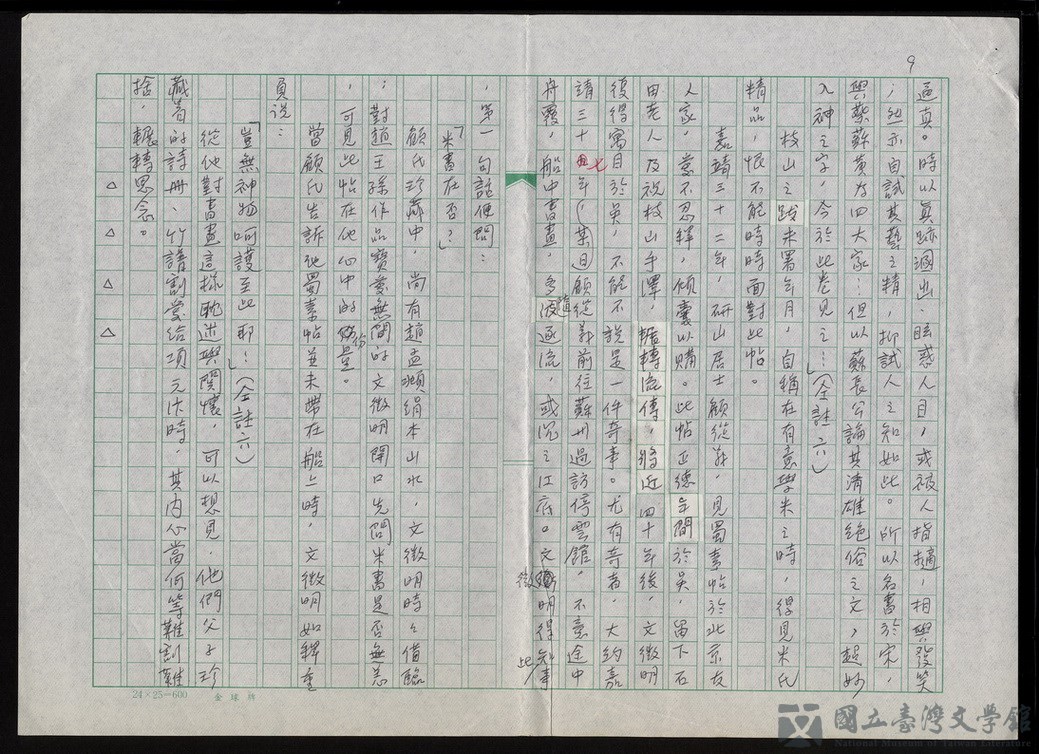 9
逼真。時以真跡溷出,眩惑人目,或被人指擿,相與發笑
;然亦自試其藝之精,抑試人之知如此。所以名書於宋,
與蔡蘇黃為四大家…但以蘇長公論其清雄絕俗之文,超妙
入神之字,今於此卷見之…」(仝註六)
枝山之跋未署年月,自稱在有意學米之時,得見米氏
精品,恨不能時時面對此帖。
嘉靖三十二年,研山居士顧從義,見蜀素帖於北京友
人家,意不忍釋,傾囊以購。此帖正德年間於吳,留下石
田老人及祝枝山手澤,輾轉流傳,將近四十年後,文徵明
復得寓目於吳,不能不說是一件奇事。尤有奇者,大約嘉
請三十七年,(某日)顧從義前往蘇州過訪停雲館,不意途中
舟覆,船中書畫,多隨波逐流,或沉之江底。文徵明得知此事
,第一句話便問:
「米書在否?」
顧氏珍藏中,尚有趙孟頫絹本山水,文徵明時々借臨
;對趙王孫作品寶愛無間的文徵明開口先問米書是否無恙
,可見此帖在他心中的份量。
當顧氏告訴他蜀素帖並未帶在船上時,文徵明如釋重
負說:
「豈無神物呵護至此耶…」(仝註六)
從他對書畫這樣耽迷與關懷,可以想見,他們父子珍
藏著的詩冊、竹譜割愛給項元汴時,其內心當何等難割難
捨,輾轉思念。
△ △ △ △
24×25=600 金球牌
國立臺灣文學館
National Museum of Taiwan Literature